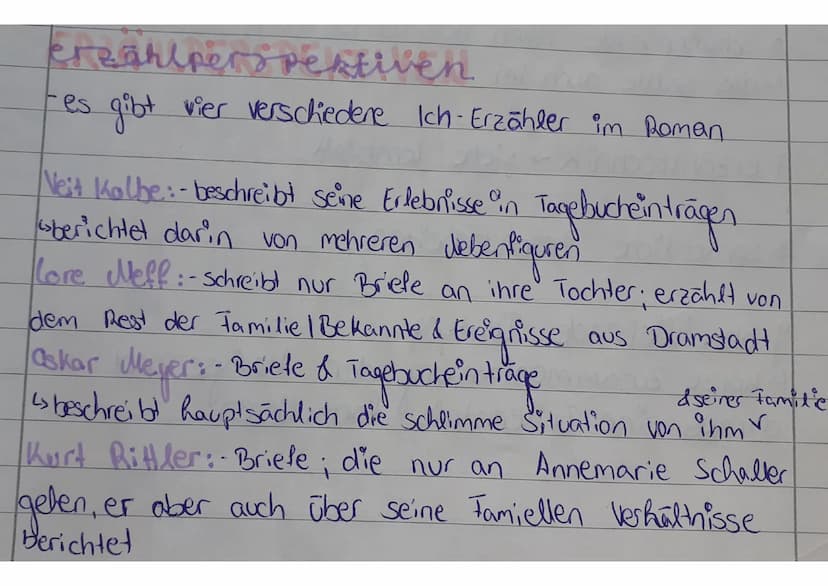 erzählperspektiven
-es gibt vier verschiedere Ich-Erzähler im Roman
Veit Kolbe:-beschreibt seine Erlebnisse in Tagebucheinträgen
↳berichtet darin von mehreren Nebenfiguren
Lore Neff:-schreibt nur Briefe an ihre Tochter; erzählt von
dem Rest der Familie/Bekannte & Ereignisse aus Dramstadt
Oskar Meyer:-Briefe & Tagebucheinträge
& seiner Familie
↳beschreibt hauptsächlich die schlimme Situation von ihm
Kurt Rittler:-Briefe; die nur an Annemarie Schaller
gehen, er aber auch über seine Famiellen Verhältnisse
berichtet